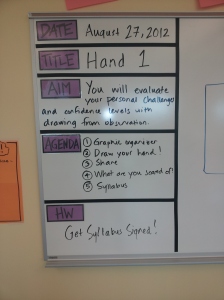 DATE August 27, 2012
TITLE Hand 1
AIM You will evaluate
your personal challenges
and confidence levels with
drawing from observation.
AGENDA ① Graphic organizer
② Draw your hand!
③ Share
④ What are you scared of?
⑤ Syllabus
HW
Get Syllabus Signed!